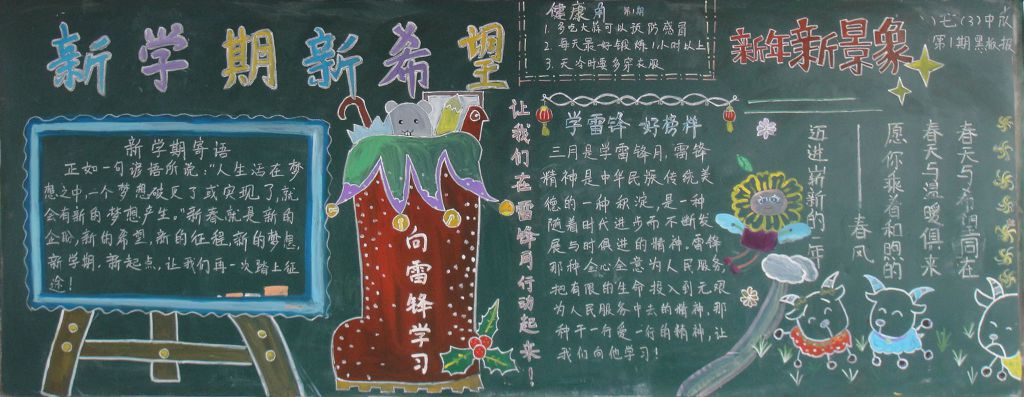 新学期新希望
新学期寄语
正如一句谚语所说："人生活在梦
想之中,一个梦想破灭了或实现了,就
会有新的梦想产生。"新春就是新的
企盼,新的希望,新的征程,新的梦想,
新学期,新起点,让我们再一次踏上征
途!
向雷锋学习
健康角 第1期
1. 多吃大蒜可以预防感冒
2. 每天最好锻炼1小时以上
3. 天冷时要多穿衣服
让我们在雷锋月行动起来!
学雷锋 好榜样
三月是学雷锋月,雷锋
精神是中华民族传统美
德的一种积淀,是一种
随着时代进步而不断发
展与时俱进的精神,雷锋
那种全心全意为人民服务
把有限的生命投入到无限
为人民服务中去的精神,那
种干一行爱一行的精神,让
我们向他学习!
新年新景象
(3)中队
第1期黑板报
春天与希望同在
春天与温暖俱来
愿你乘着和煦的
——春风
迈进崭新的一年